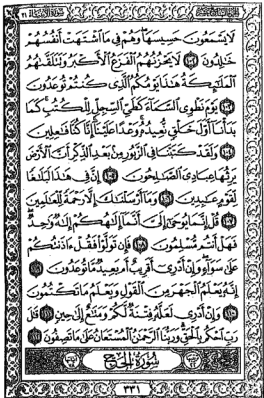 سورة الأنبياء ٢١
لَا يَسْمَعُونَ حَسِيسَهَا وَهُمْ فِي مَا اشْتَهَتْ أَنفُسُهُمْ
خَالِدُونَ ۝١٠٢ لَا يَحْزُنُهُمُ الْفَزَعُ الْأَكْبَرُ وَتَتَلَقَّاهُمُ
الْمَلَائِكَةُ هَذَا يَوْمُكُمُ الَّذِي كُنتُمْ تُوعَدُونَ
۝١٠٣ يَوْمَ نَطْوِي السَّمَاءَ كَطَيِّ السِّجِلِّ لِلْكُتُبِ كَمَا
بَدَأْنَا أَوَّلَ خَلْقٍ نُّعِيدُهُ وَعْدًا عَلَيْنَا إِنَّا كُنَّا فَاعِلِينَ
۝١٠٤ وَلَقَدْ كَتَبْنَا فِي الزَّبُورِ مِن بَعْدِ الذِّكْرِ أَنَّ الْأَرْضَ
يَرِثُهَا عِبَادِيَ الصَّالِحُونَ ۝١٠٥ إِنَّ فِي هَذَا لَبَلَاغًا
لِّقَوْمٍ عَابِدِينَ ۝١٠٦ وَمَا أَرْسَلْنَاكَ إِلَّا رَحْمَةً لِّلْعَالَمِينَ
۝١٠٧ قُلْ إِنَّمَا يُوحَى إِلَيَّ أَنَّمَا إِلَهُكُمْ إِلَهٌ وَاحِدٌ
فَهَلْ أَنتُم مُّسْلِمُونَ ۝١٠٨ فَإِن تَوَلَّوْا فَقُلْ آذَنتُكُمْ
عَلَى سَوَاءٍ وَإِنْ أَدْرِي أَقَرِيبٌ أَم بَعِيدٌ مَّا تُوعَدُونَ ۝١٠٩
إِنَّهُ يَعْلَمُ الْجَهْرَ مِنَ الْقَوْلِ وَيَعْلَمُ مَا تَكْتُمُونَ
۝١١٠ وَإِنْ أَدْرِي لَعَلَّهُ فِتْنَةٌ لَّكُمْ وَمَتَاعٌ إِلَى حِينٍ ۝١١١ قَالَ
رَبِّ احْكُم بِالْحَقِّ وَرَبُّنَا الرَّحْمَنُ الْمُسْتَعَانُ عَلَى مَا تَصِفُونَ ۝١١٢
سُورَةُ الْحَجِّ
٣٣١